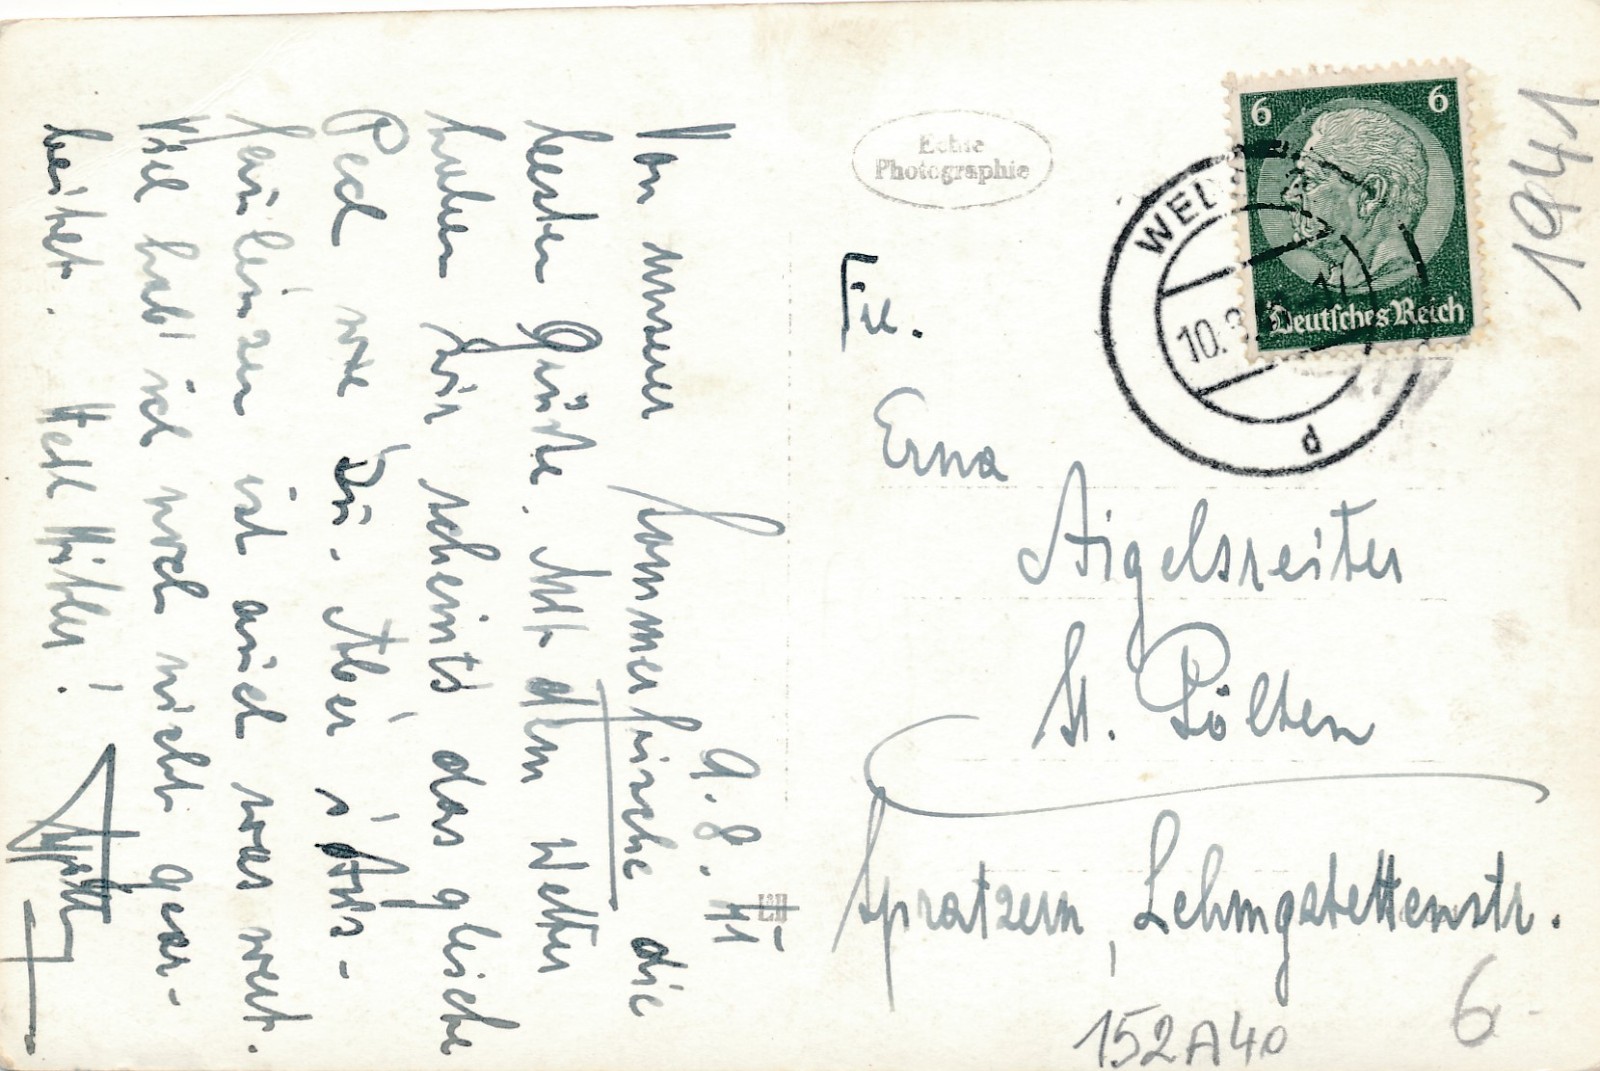 9. 8. 41
Von unserer Sommerfrische die
besten Grüße. Mit dem Wetter
haben wir scheints das gleiche
Pech wie Du. Aber s'Aus-
faulenzen ist auch was wert.
Viel hab' ich noch nicht gear-
beitet. Heil Hitler!
Echte
Photographie
6 6
Deutsches Reich
WELS
10. 8.
d
1941
Frl.
Erna
Aigelsreiter
St. Pölten
Spratzern, Lehmgstettenstr.
152A40
6